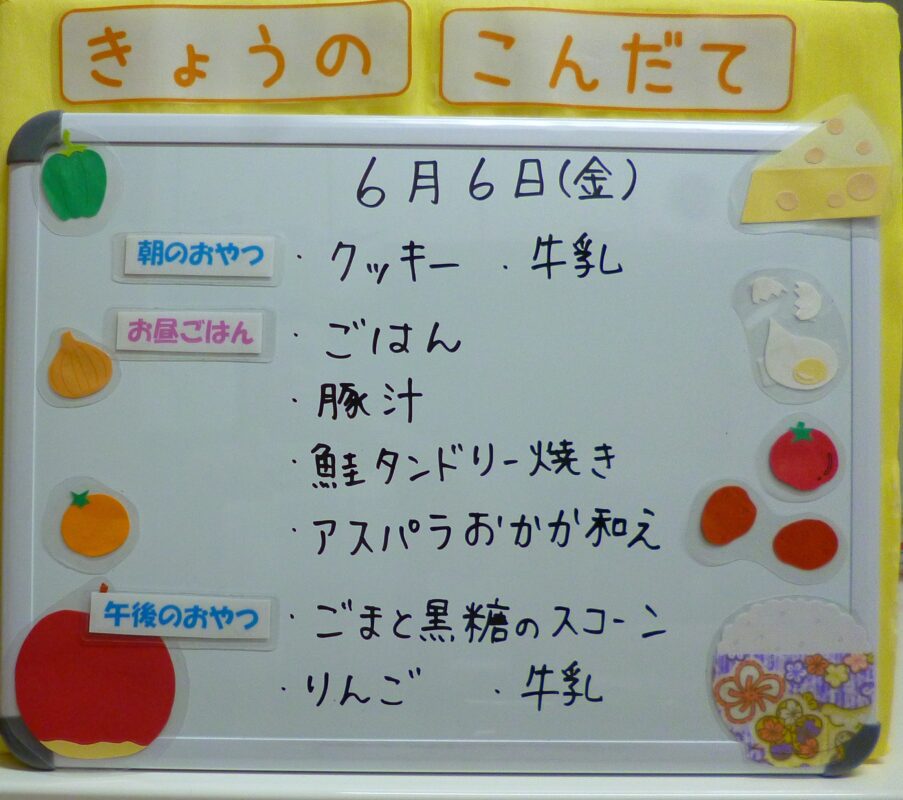 きょうの こんだて
6月6日(金)
朝のおやつ ・クッキー ・牛乳
お昼ごはん ・ごはん
・豚汁
・鮭タンドリー焼き
・アスパラおかか和え
午後のおやつ ・ごまと黒糖のスコーン
・りんご ・牛乳